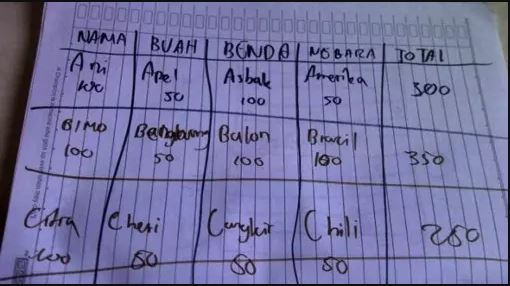 NAMA BUAH BENDA NEGARA TOTAL
Ani Apel Asbak Amerika
100 50 100 50 300
BIMO Bengkuang Balon Brazil
100 50 100 100 350
Citra Cheri Cangkir Chili 250
100 50 50 50